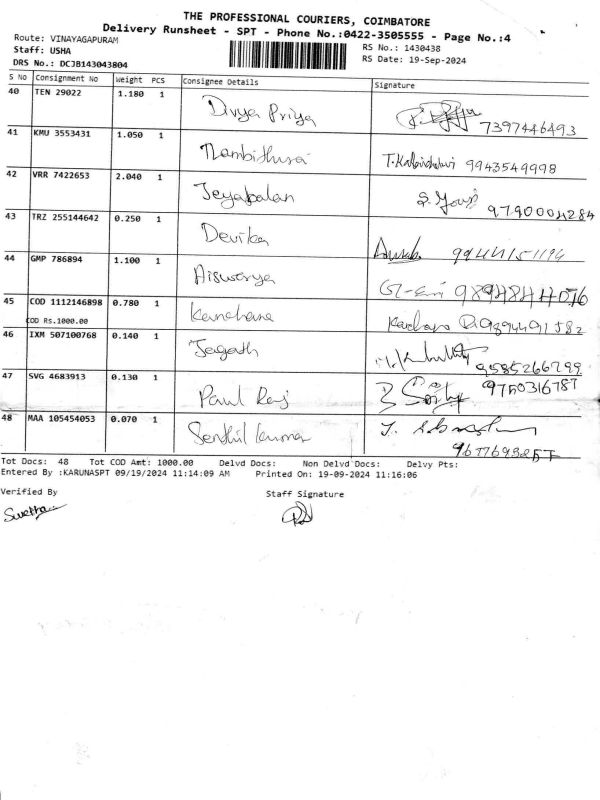 THE PROFESSIONAL COURIERS, COIMBATORE
Delivery Runsheet - SPT - Phone No.:0422-3505555 - Page No.:4
Route: VINAYAGAPURAM
RS No.: 1430438
Staff: USHA
RS Date: 19-Sep-2024
DRS No.: DCJB143043804
S No Consignment No Weight PCS Consignee Details Signature
40 TEN 29022 1.180 1 Divya Priya 7397446493
41 KMU 3553431 1.050 1 9943549998
42 VRR 7422653 2.040 1 Jeyabalan 9790004284
43 TRZ 255144642 0.250 1 Devika
44 GMP 786894 1.100 1 Aiswarya
45 COD 1112146898 0.780 1 Kanchana
COD Rs.1000.00
46 IXM 507100768 0.140 1 Jagath 9585266799
47 SVG 4683913 0.130 1 Paul Raj
48 MAA 105454053 0.070 1 Senthil Kumar
Tot Docs: 48 Tot COD Amt: 1000.00 Delvd Docs: Non Delvd Docs: Delvy Pts:
Entered By :KARUNASPT 09/19/2024 11:14:09 AM Printed On: 19-09-2024 11:16:06
Verified By Staff Signature
Swetha